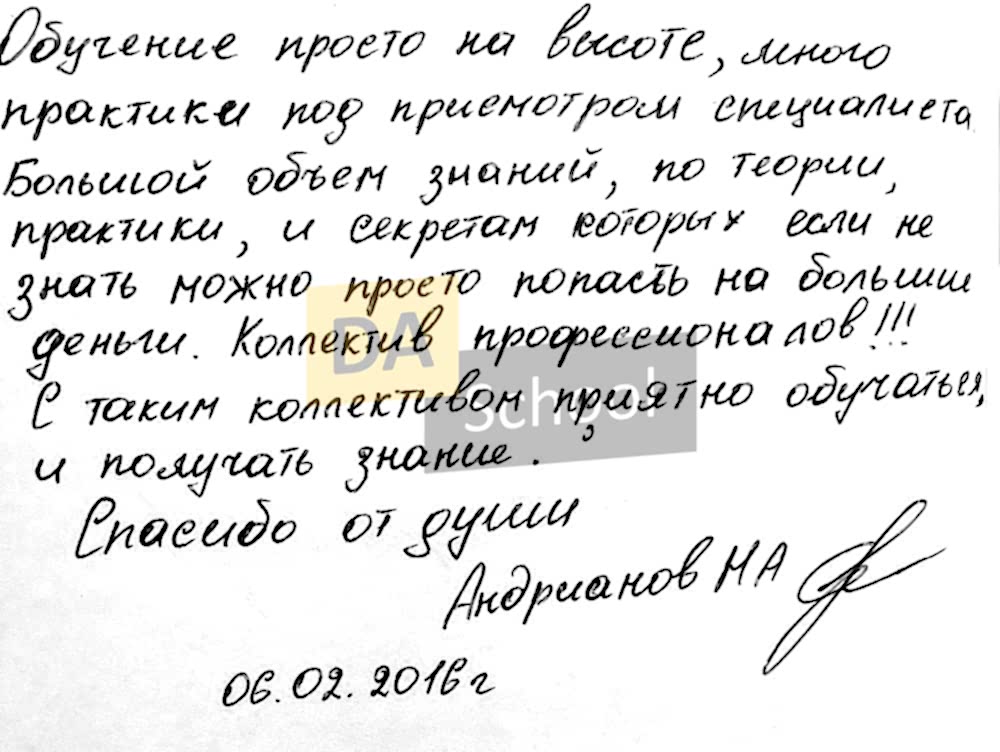 Обучение просто на высоте, много
практики под присмотром специалиста
Большой объем знаний, по теории,
практики, и секретам которых если не
знать можно просто попасть на большие
деньги. Коллектив профессионалов!!!
С таким коллективом приятно обучаться,
и получать знание.
Спасибо от души
Андрианов НА
06.02.2016г
DA
School